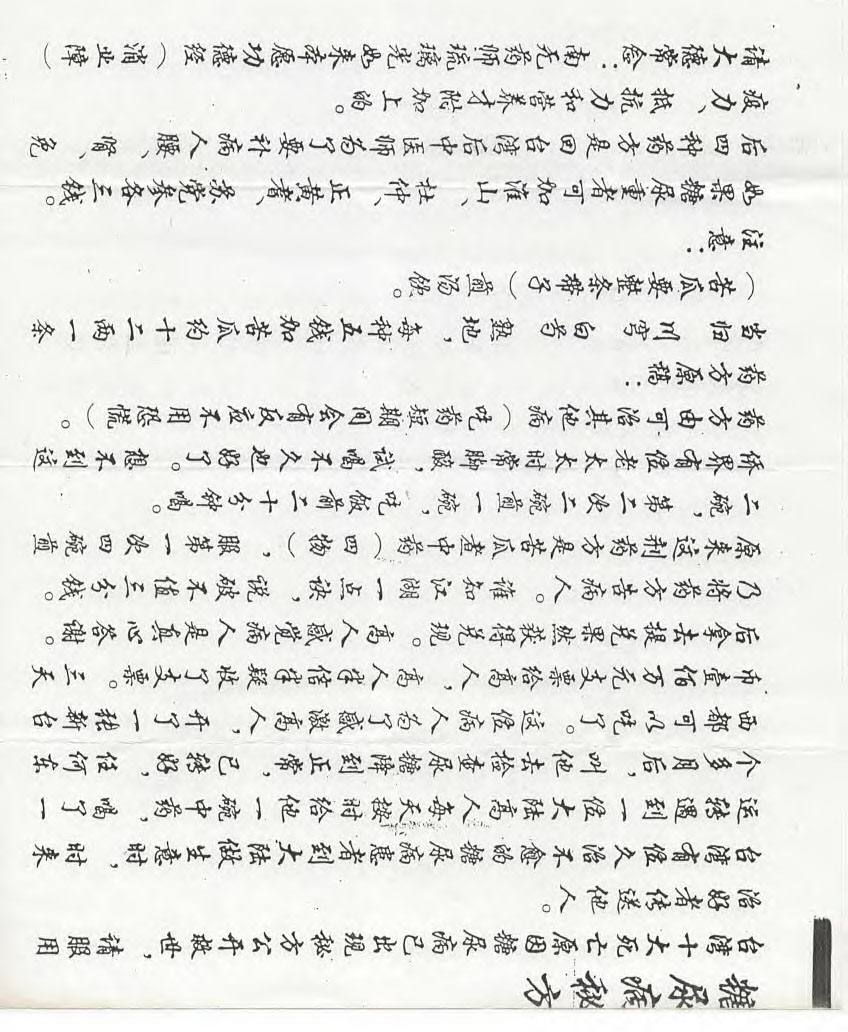 糖尿病秘方
台湾十大死亡原因糖尿病已出现秘方公开救世，请服用
治好者传送他人。
台湾有位久治不愈的糖尿病患者到大陆做生意时，时来
运转遇到一位大陆高人每天按时给他一碗中药，喝了一
个多月后，叫他去检查尿糖降到正常，已转好，任何东
西都可以吃了。这位病人为了感激高人，开了一张新台
币壹佰万元支票给高人，高人半信半疑收了支票。三天
后拿去提兑果然获得兑现。高人感觉病人是真心答谢。
乃将药方告病人。谁知江湖一点诀，说破不值三分钱。
原来这剂药方是苦瓜煮中药（四物），服第一次四碗煎
二碗，第二次二碗煎一碗，吃饭前二十分钟喝。
侨界有位老太太时常脚酸，试喝不久也好了。想不到这
药方由可治其他病（吃药短期间会有反应不用恐慌）。
药方原稿：
当归 川穹 白芍 熟地，每种五钱加苦瓜约十二两一条
（苦瓜要整条带子）煎汤饮。
注意：
如果糖尿重者可加淮山、杜仲、正黄耆、苏党参各三钱。
后四种药方是回台湾后中医师为了要补病人腰、肾、免
疫力、抵抗力和营养才附加上的。
请大德常念：南无药师琉璃光如来本愿功德经（消业障）